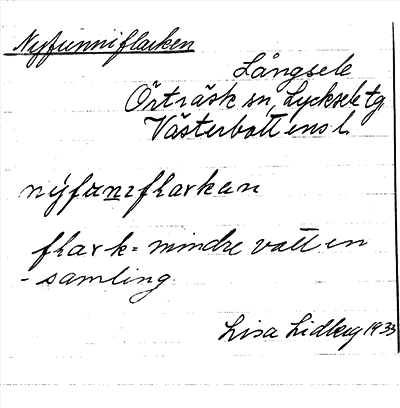 Nyfunniflarken
Långsele
Örträsk sn, Lycksele tg
Västerbottens l.
nýfunɪflarkan
flark = mindre vatten
- samling.
Lisa Lidberg 1933